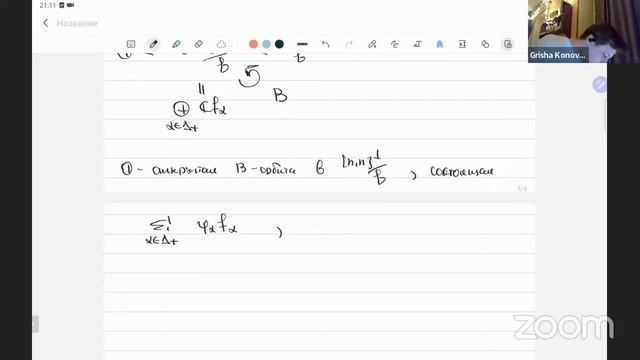 21:11
Название
Grisha Konov...
𝔟
𝔟
||
B
⊕ ℂf_α
α∈Δ₊
① - открытая B-орбита в [n,n]^⊥/𝔟 , состоящая
3/4
Σ ψ_α f_α ,
α∈Δ₊
zoom